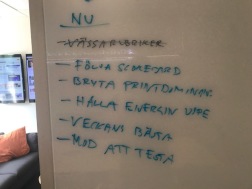 NU
- VÄSSA RUBRIKER
- FÖLJA SCORECARD
- BRYTA PRINTDOMINANS
- HÅLLA ENERGIN UPPE
- VECKANS BÄSTA
- MOD ATT TESTA